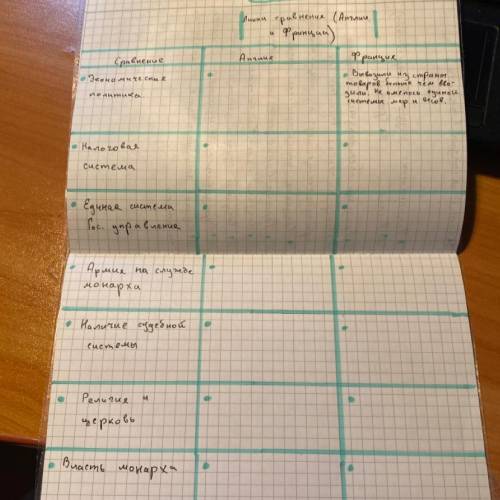 Линии сравнения (Англии
и Франции)
Сравнение
Англия
Франция
Экономическая
политика
Вывозили из страны
товаров больше чем вво-
зили. Не имелось единой
системы мер и весов.
Налоговая
система
Единая система
Гос. управления
Армия на службе
монарха
Наличие судебной
системы
Религия и
церковь
Власть монарха